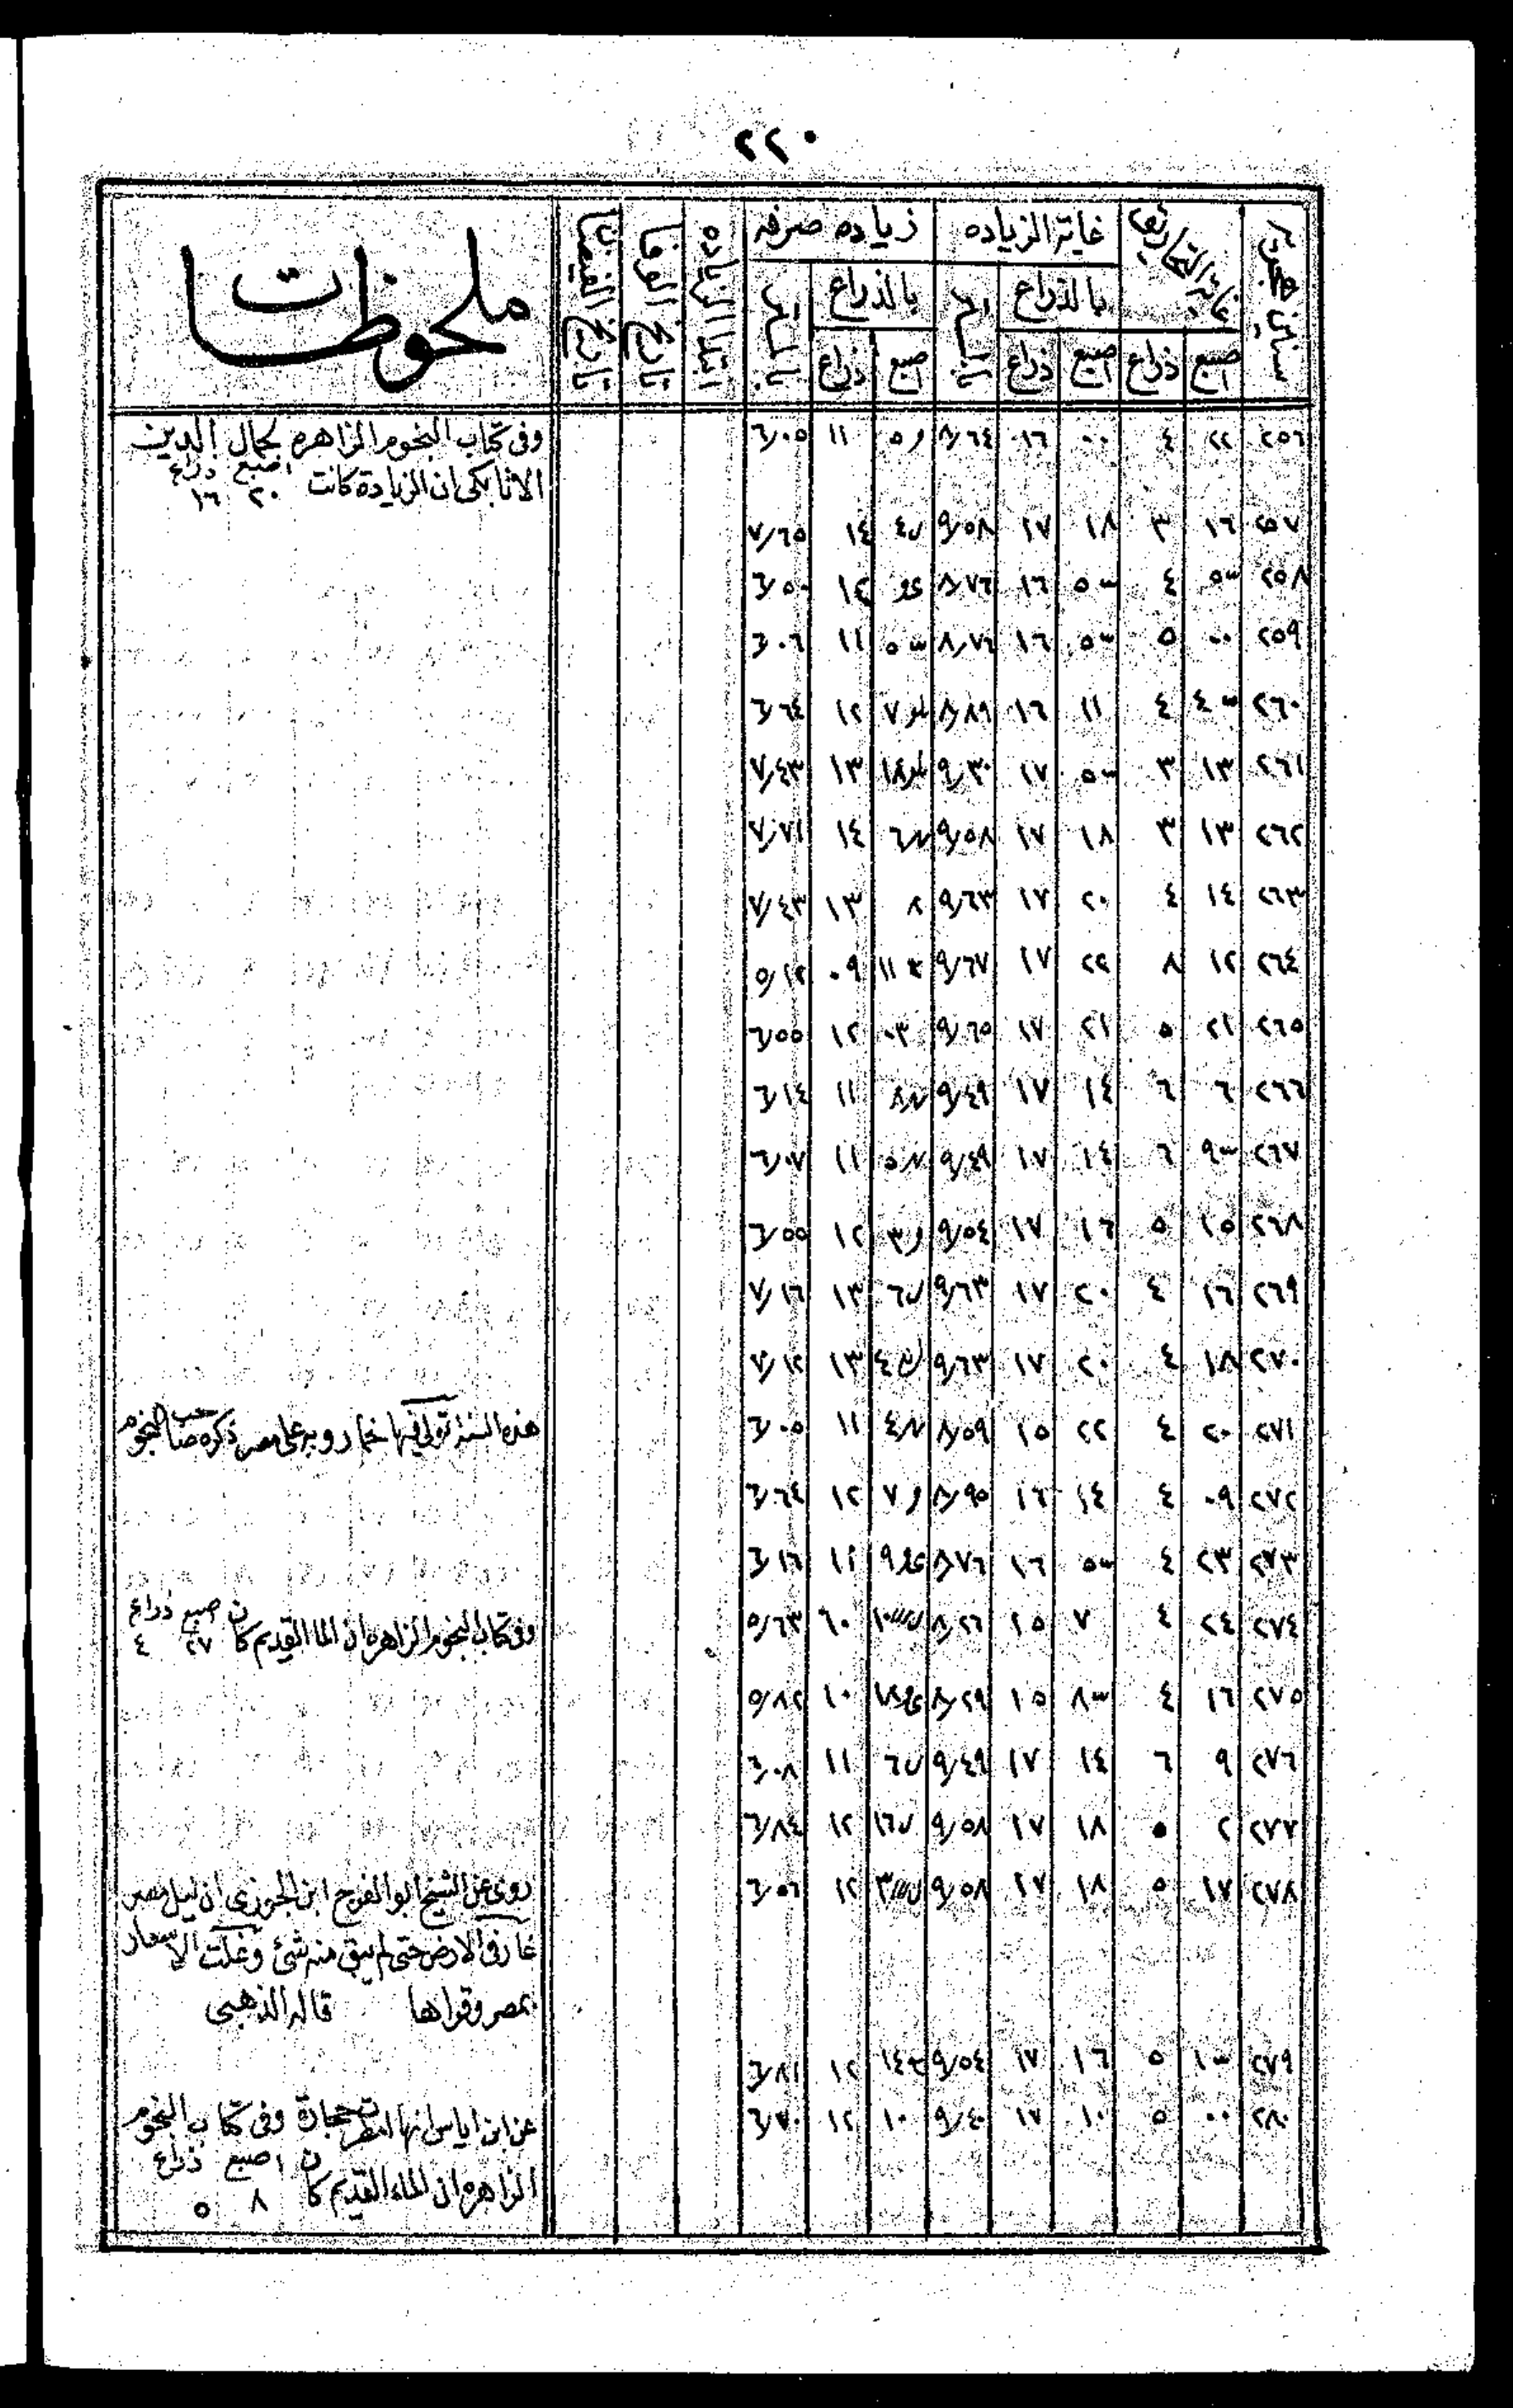 ٢٢٠
سنين هجريه | نهاية التحاريق | غاية الزياده | زياده صرفه | ابتداء الزياده | تاريخ الوفا | تاريخ الفيضان | ملحوظات
بالذراع | بالمتر | بالذراع | بالمتر
اصبع | ذراع | اصبع | ذراع | اصبع | ذراع
٢٥٦ | ٢٢ | ٤ | ٠٠ | ١٦ | ٨/٦٤ | ٥ | ١١ | ٦/٠٥ | وفى كتاب النجوم الزاهره لجمال الدين
الاتابكى ان الزيادة كانت اصبع ٢٠ ذراع ١٦
٢٥٧ | ١٦ | ٣ | ١٨ | ١٧ | ٩/٥٨ | ٤ | ١٤ | ٧/٦٥
٢٥٨ | ٥ | ٤ | ٥ | ١٦ | ٨/٧٦ | ١٢ | ٦/٥٠
٢٥٩ | ٠٠ | ٥ | ٥ | ١٦ | ٨/٧٦ | ٥ | ١١ | ٦/٠٦
٢٦٠ | ٤ | ٤ | ١١ | ١٦ | ٨/٨٩ | ٧ | ١٢ | ٦/٦٤
٢٦١ | ١٣ | ٣ | ٥ | ١٧ | ٩/٣٠ | ١٨ | ١٣ | ٧/٤٣
٢٦٢ | ١٣ | ٣ | ١٨ | ١٧ | ٩/٥٨ | ٦ | ١٤ | ٧/٧١
٢٦٣ | ١٤ | ٤ | ٢٠ | ١٧ | ٩/٦٣ | ٨ | ١٣ | ٧/٤٣
٢٦٤ | ١٢ | ٨ | ٢٢ | ١٧ | ٩/٦٧ | ١١ | ٠٩ | ٥/١٢
٢٦٥ | ٢١ | ٥ | ٢١ | ١٧ | ٩/٦٥ | ٠٣ | ١٢ | ٦/٥٥
٢٦٦ | ٦ | ٦ | ١٤ | ١٧ | ٩/٤٩ | ٨ | ١١ | ٦/١٤
٢٦٧ | ٩ | ٦ | ١٤ | ١٧ | ٩/٤٩ | ٥ | ١١ | ٦/٠٧
٢٦٨ | ١٥ | ٥ | ١٦ | ١٧ | ٩/٥٤ | ٣ | ١٢ | ٦/٥٥
٢٦٩ | ١٦ | ٤ | ٢٠ | ١٧ | ٩/٦٣ | ٦ | ١٣ | ٧/١٦
٢٧٠ | ١٨ | ٤ | ٢٠ | ١٧ | ٩/٦٣ | ٤ | ١٣ | ٧/١٢
٢٧١ | ٢٠ | ٤ | ٢٢ | ١٥ | ٨/٥٩ | ٤ | ١١ | ٦/٠٥ | هذه السنة تولى فيها خمارويه على مصر ذكره صاحب النجوم
٢٧٢ | ٠٩ | ٤ | ١٤ | ١٦ | ٨/٩٥ | ٧ | ١٢ | ٦/٦٤
٢٧٣ | ٢٣ | ٤ | ٥ | ١٦ | ٨/٧٦ | ٩ | ١١ | ٦/١٦
٢٧٤ | ٢٤ | ٤ | ٧ | ١٥ | ٨/٢٦ | ١٠ | ٥/٦٣ | وفى كتاب النجوم الزاهره ان الما القديم كان اصبع ٢٧ ذراع ٤
٢٧٥ | ١٦ | ٤ | ٨ | ١٥ | ٨/٢٩ | ١٨ | ١٠ | ٥/٨٢
٢٧٦ | ٩ | ٦ | ١٤ | ١٧ | ٩/٤٩ | ٦ | ١١ | ٦/٠٨
٢٧٧ | ٢ | ٥ | ١٨ | ١٧ | ٩/٥٨ | ١٦ | ١٢ | ٦/٨٤
٢٧٨ | ١٧ | ٥ | ١٨ | ١٧ | ٩/٥٨ | ٣ | ١٢ | ٦/٥٦ | روى عن الشيخ ابو الفرج ابن الجوزى ان نيل مصر
غار فى الارض حتى لم يبق منه شئ وغلت الاسعار
بمصر وقراها قاله الذهبى
٢٧٩ | ١٠ | ٥ | ١٦ | ١٧ | ٩/٥٤ | ١٤ | ١٢ | ٦/٨١
٢٨٠ | ٠٠ | ٥ | ١٠ | ١٧ | ٩/٤٠ | ١٠ | ١٢ | ٦/٧٠ | عن ابن اياس انها امطرت حجارة وفى كتاب النجوم
الزاهره ان الماء القديم كان اصبع ٨ ذراع ٥